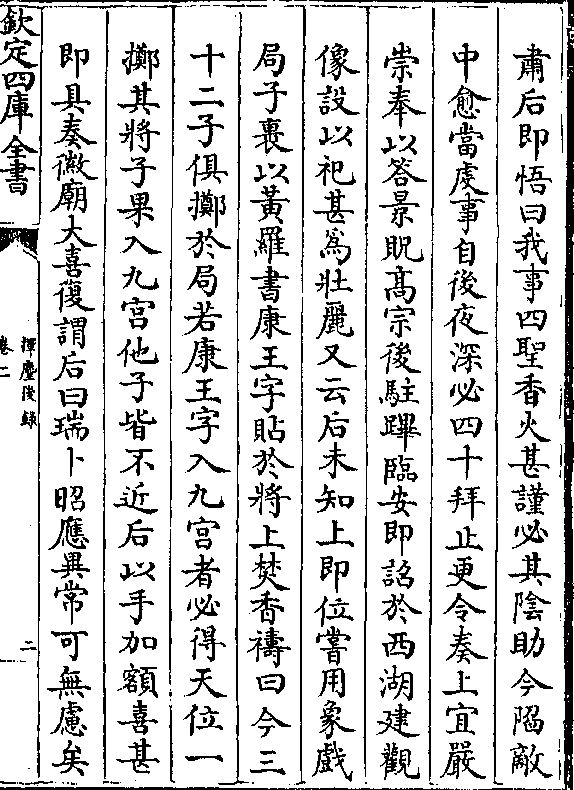 肅后即悟曰我事四聖香火甚謹必其陰助今䧟敵
中愈當䖍事自後夜深必四十拜止更令奏上宜嚴
崇奉以答景貺髙宗後駐蹕臨安即詔於西湖建觀
像設以祀甚為壯麗又云后未知上即位嘗用象戲
局子裹以黃羅書康王字貼於將上焚香禱曰今三
十二子俱擲於局若康王字入九宮者必得天位一
擲其將子果入九宮他子皆不近后以手加額喜甚
即具奏徽廟大喜復謂后曰瑞卜昭應異常可無慮矣
欽定四庫全書
揮麈後錄
卷二
二